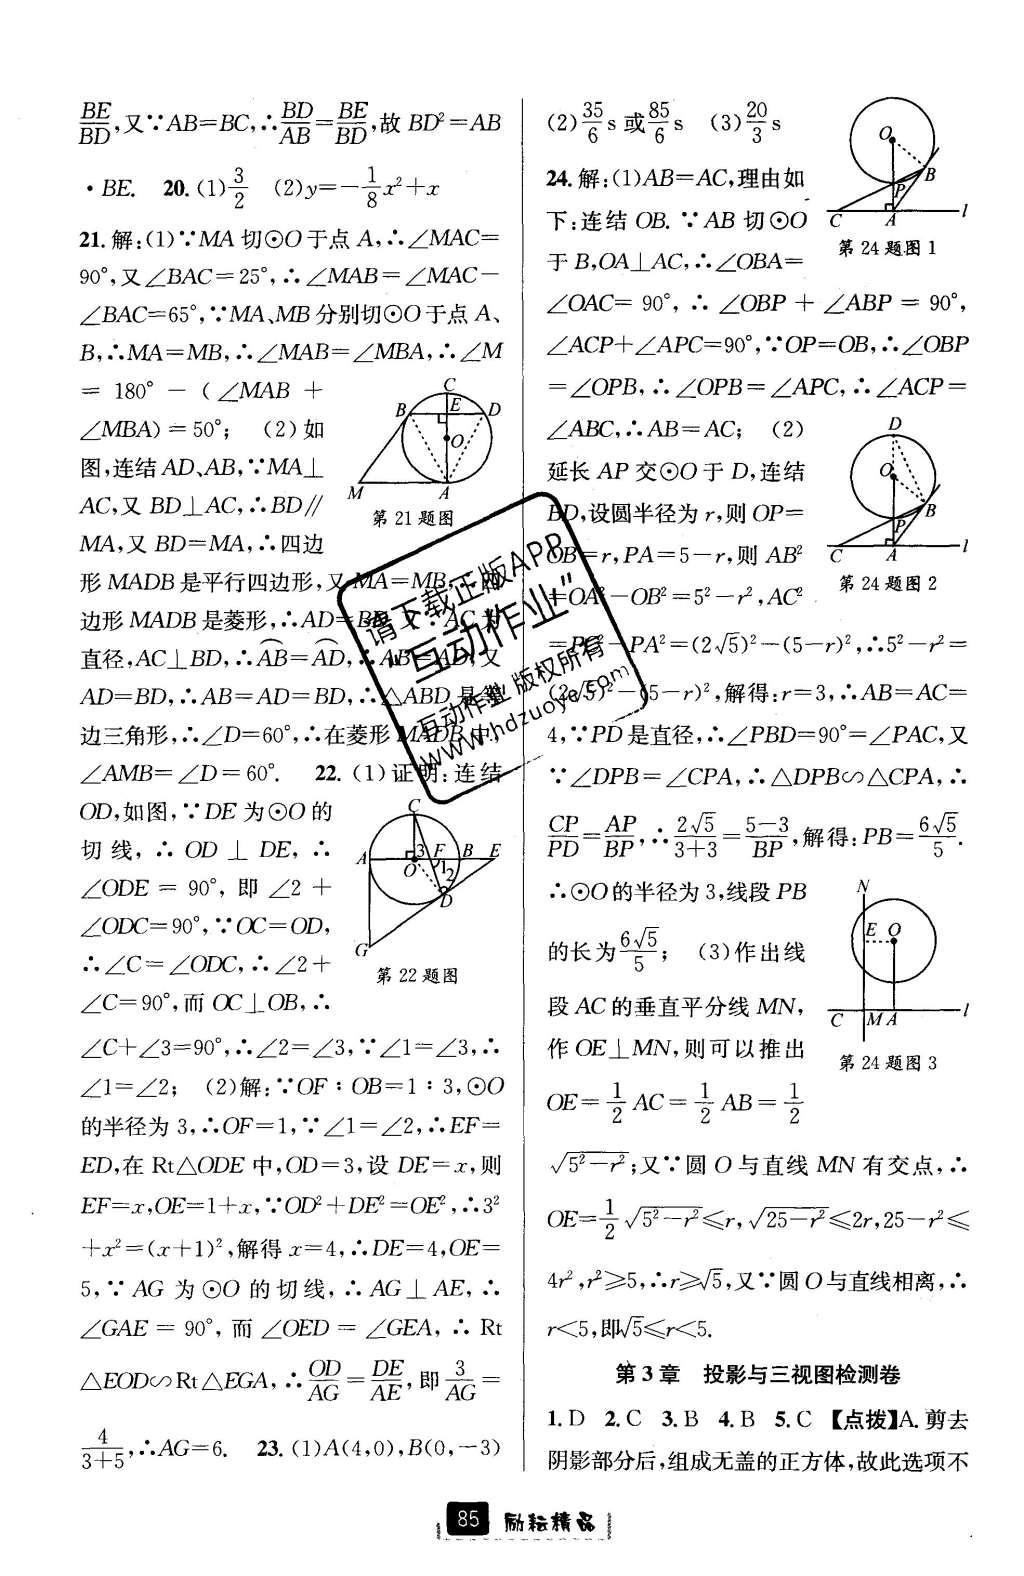 BE/BD,又∵AB=BC,∴BD/AB=BE/BD,故 BD²=AB
·BE. 20.(1)3/2 (2)y=-1/8x²+x
21.解:(1)∵MA 切⊙O 于点 A,∴∠MAC=
90°,又∠BAC=25°,∴∠MAB=∠MAC-
∠BAC=65°,∵MA、MB 分别切⊙O 于点 A、
B,∴MA=MB,∴∠MAB=∠MBA,∴∠M
= 180° - (∠MAB +
∠MBA)=50°; (2)如
图,连结 AD、AB,∵MA⊥
AC,又 BD⊥AC,∴BD∥
MA,又 BD=MA,∴四边
C
B
E
D
O
M
A
第 21 题图
形 MADB 是平行四边形,又 MA=MB,∴四
边形 MADB 是菱形,∴AD=BD,又∵AC 为
直径,AC⊥BD,∴AB=AD,∴AB=AD,又
AD=BD,∴AB=AD=BD,∴△ABD 是等
边三角形,∴∠D=60°,∴在菱形 MADB 中,
∠AMB=∠D=60°. 22.(1)证明:连结
OD,如图,∵DE 为⊙O 的
切线,∴OD⊥DE,∴
∠ODE = 90°,即∠2 +
∠ODC=90°,∵OC=OD,
∴∠C=∠ODC,∴∠2+
∠C=90°,而 OC⊥OB,∴
C
A
3
F
B
E
O
1
2
D
G
第 22 题图
∠C+∠3=90°,∴∠2=∠3,∵∠1=∠3,∴
∠1=∠2; (2)解:∵OF∶OB=1∶3,⊙O
的半径为 3,∴OF=1,∵∠1=∠2,∴EF=
ED,在 Rt△ODE 中,OD=3,设 DE=x,则
EF=x,OE=1+x,∵OD²+DE²=OE²,∴3²
+x²=(x+1)²,解得 x=4,∴DE=4,OE=
5,∵AG 为⊙O 的切线,∴AG⊥AE,∴
∠GAE = 90°,而∠OED = ∠GEA,∴Rt
△EOD∽Rt△EGA,∴OD/AG=DE/AE,即3/AG=
4/3+5,∴AG=6. 23.(1)A(4,0),B(0,-3)
(2)35/6 s 或85/6 s (3)20/3 s
24.解:(1)AB=AC,理由如
下:连结 OB.∵AB 切⊙O
于 B,OA⊥AC,∴∠OBA=
O
P
B
C
A
l
第 24 题图 1
∠OAC= 90°,∴∠OBP + ∠ABP = 90°,
∠ACP+∠APC=90°,∵OP=OB,∴∠OBP
=∠OPB,∴∠OPB=∠APC,∴∠ACP=
∠ABC,∴AB=AC; (2)
延长 AP 交⊙O 于 D,连结
BD,设圆半径为 r,则 OP=
OB=r,PA=5-r,则 AB²
=OA²-OB²=5²-r²,AC²
D
O
P
B
C
A
l
第 24 题图 2
=PC²-PA²=(2√5)²-(5-r)²,∴5²-r²=
(2√5)²-(5-r)²,解得:r=3,∴AB=AC=
4,∵PD 是直径,∴∠PBD=90°=∠PAC,又
∵∠DPB=∠CPA,∴△DPB∽△CPA,∴
CP/PD=AP/BP,∴2√5/3+3=5-3/BP,解得:PB=6√5/5.
∴⊙O 的半径为 3,线段 PB
的长为6√5/5; (3)作出线
段 AC 的垂直平分线 MN,
作 OE⊥MN,则可以推出
OE=1/2 AC=1/2 AB=1/2
N
E
O
C
M
A
l
第 24 题图 3
√5²-r²;又∵圆 O 与直线 MN 有交点,∴
OE=1/2√5²-r²≤r,√25-r²≤2r,25-r²≤
4r²,r²≥5,∴r≥√5,又∵圆 O 与直线相离,∴
r<5,即√5≤r<5.
第 3 章 投影与三视图检测卷
1.D 2.C 3.B 4.B 5.C 【点拨】A.剪去
阴影部分后,组成无盖的正方体,故此选项不
请下载正版APP
“互动作业”
互动作业 版权所有
www.hdzuoye.com
85 励耘精品